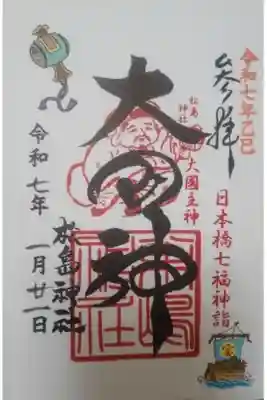 令和七年乙巳
奉拝
日本橋七福神詣
松島神社
大國主神
大国神
松島神社
松島神社
令和七年 一月廿一日
宝